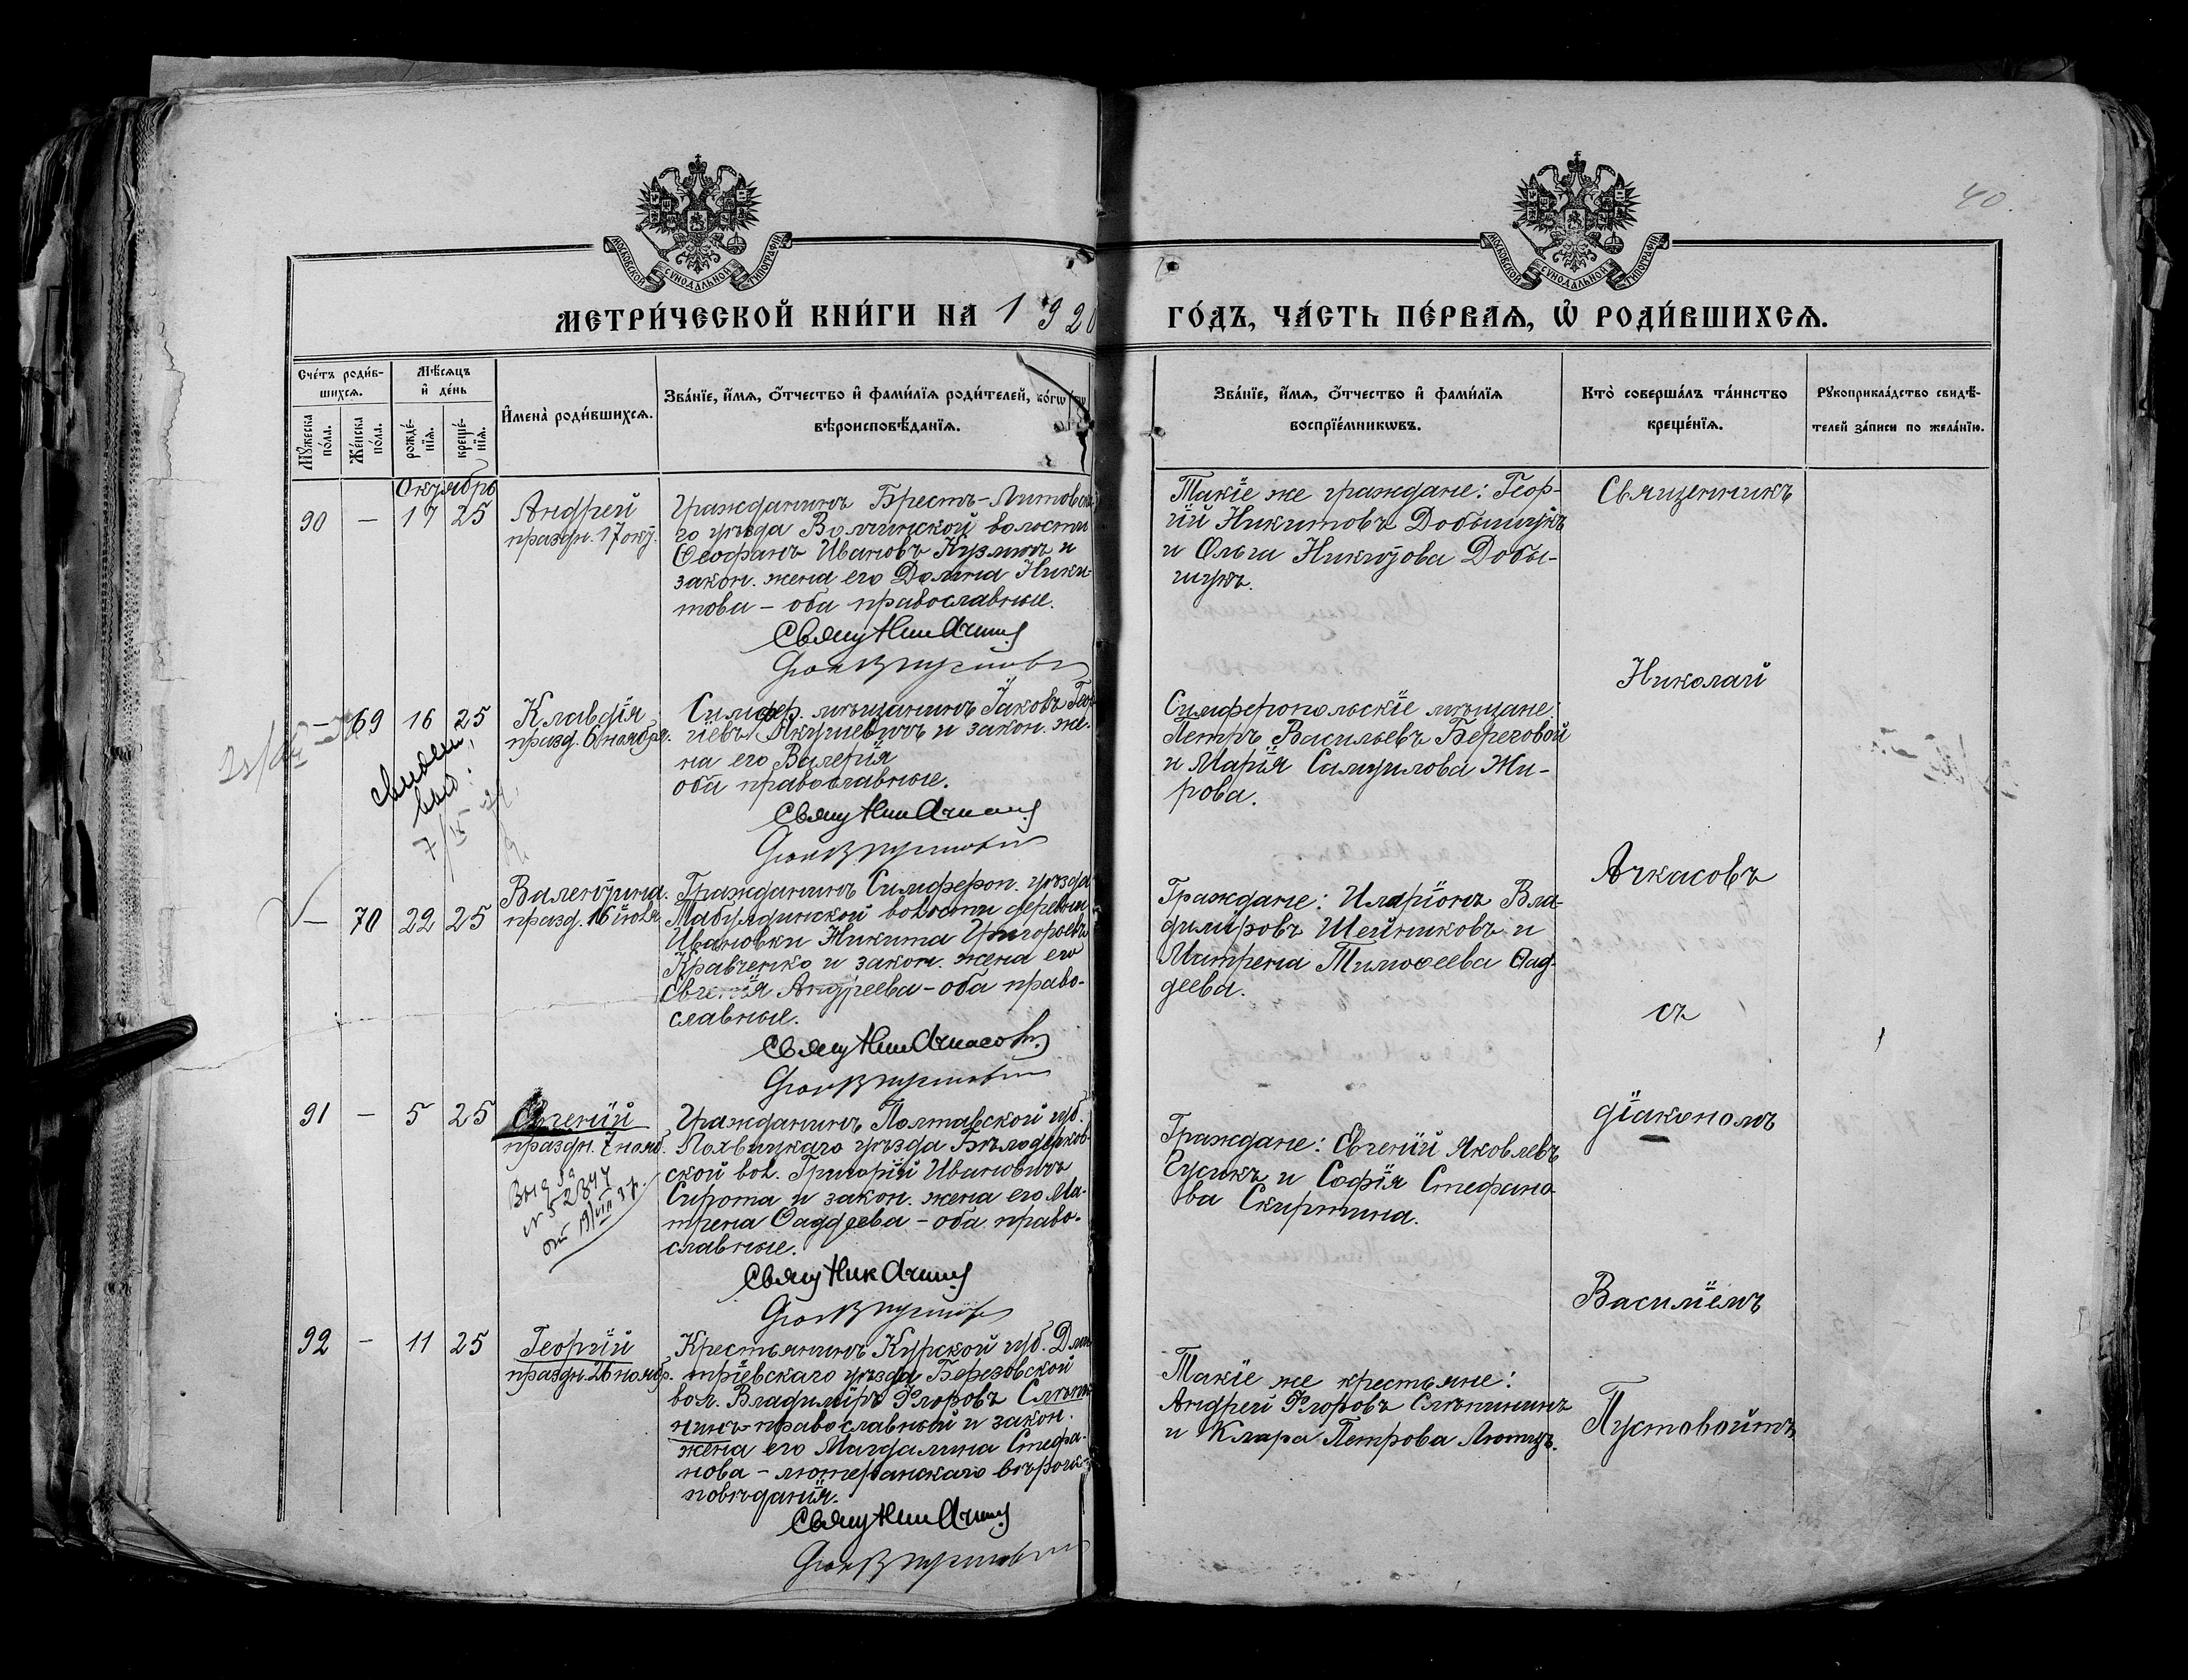 40.
МОСКОВСКОЙ СУНОДАЛЬНОЙ ТИПОГРАФІИ
МОСКОВСКОЙ СУНОДАЛЬНОЙ ТИПОГРАФІИ
МЕТРИ́ЧЕСКОЙ КНИ́ГИ НА 1920
ГО́ДЪ, ЧА́СТЬ ПЕ́РВАѦ, Ѽ РОДИ́ВШИХСѦ.
Сче́тъ роди́в-
шихсѧ.
Мꙋ́жеска по́ла.
Же́нска по́ла.
Мѣ́сѧцъ
и҆ де́нь
рожде́-
нїѧ.
креще́-
нїѧ.
И҆мена̀ роди́вшихсѧ.
Зва́нїе, и҆́мѧ, ѻ҆́тчество и҆ фами́лїѧ роди́телей, ко́гѡ
вѣроисповѣ́данїѧ.
Зва́нїе, и҆́мѧ, ѻ҆́тчество и҆ фами́лїѧ
воспрїе́мникѡвъ.
Кто̀ соверша́лъ та́инство
креще́нїѧ.
Рꙋкоприкла́дство свидѣ́-
телей за́писи по жела́нїю.
Октябрь
90 — 17 25
Андрей
праздн. 17 окт.
Гражданинъ Брестъ-Литовска-
го уѣзда Волчинской волости
Ѳеофанъ Ивановъ Кузмичъ и
закон. жена его Домна Ники-
това – оба православные.
Свящ Ник Ачкас
Діак В Пустово
Такіе же граждане: Геор-
гій Никитовъ Добышукъ
и Ольга Никитова Добы-
шукъ.
— 69 16 25
Клавдія
празд. 6 ноября.
Симфер. мѣщанинъ Іаковъ Геор
гіевъ Якушевичъ и закон. же-
на его Валерія
оба православные.
Свящ Ник Ачкас
Діак В Пустовой
Симферопольскіе мѣщане:
Петръ Васильевъ Береговой
и Марія Самуилова Жи-
рова.
— 70 22 25
Валентина.
празд. 16 іюля
Гражданинъ Симфероп. уѣзда
Табулдинской волости деревни
Ивановки Никита Григорьевъ
Кравченко и закон. жена его
Евгенія Андреева – оба право-
славные.
Свящ Ник Ачкасовъ
Діак В Пустовой
Граждане: Иларіонъ Вла-
диміровъ Шейниковъ и
Матрена Тимоѳеева Ѳад-
деева.
91 — 5 25
Евгеній
праздн. 7 нояб.
Гражданинъ Полтавской губ.
Лохвицкаго уѣзда Бѣлоцерков-
ской вол. Григорій Ивановичъ
Сирота и закон. жена его Ма-
трена Ѳаддеева – оба право-
славные.
Свящ Ник Ачкас
Діак В Пустов
Граждане: Евгеній Яковлевъ
Гусикъ и Софія Стефано-
ва Скиртина.
92 — 11 25
Георгій
праздн. 26 нояб.
Крестьянинъ Курской губ. Дми-
тріевскаго уѣзда Березовской
вол. Владиміръ Ѳлоровъ Слѣпы-
нинъ православный и закон.
жена его Магдалина Стефа-
нова – лютеранскаго вѣроис-
повѣданія.
Свящ Ник Ачкас
Діак В Пустовой
Такіе же крестьяне:
Андрей Ѳлоровъ Слѣпынинъ
и Клара Петрова Лютцъ.
Священникъ
Николай
Ачкасовъ
съ
діакономъ
Василіемъ
Пустовойтъ